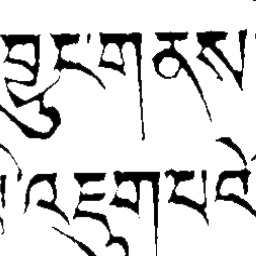 བྱུང་གནས
འཇུག་པའི